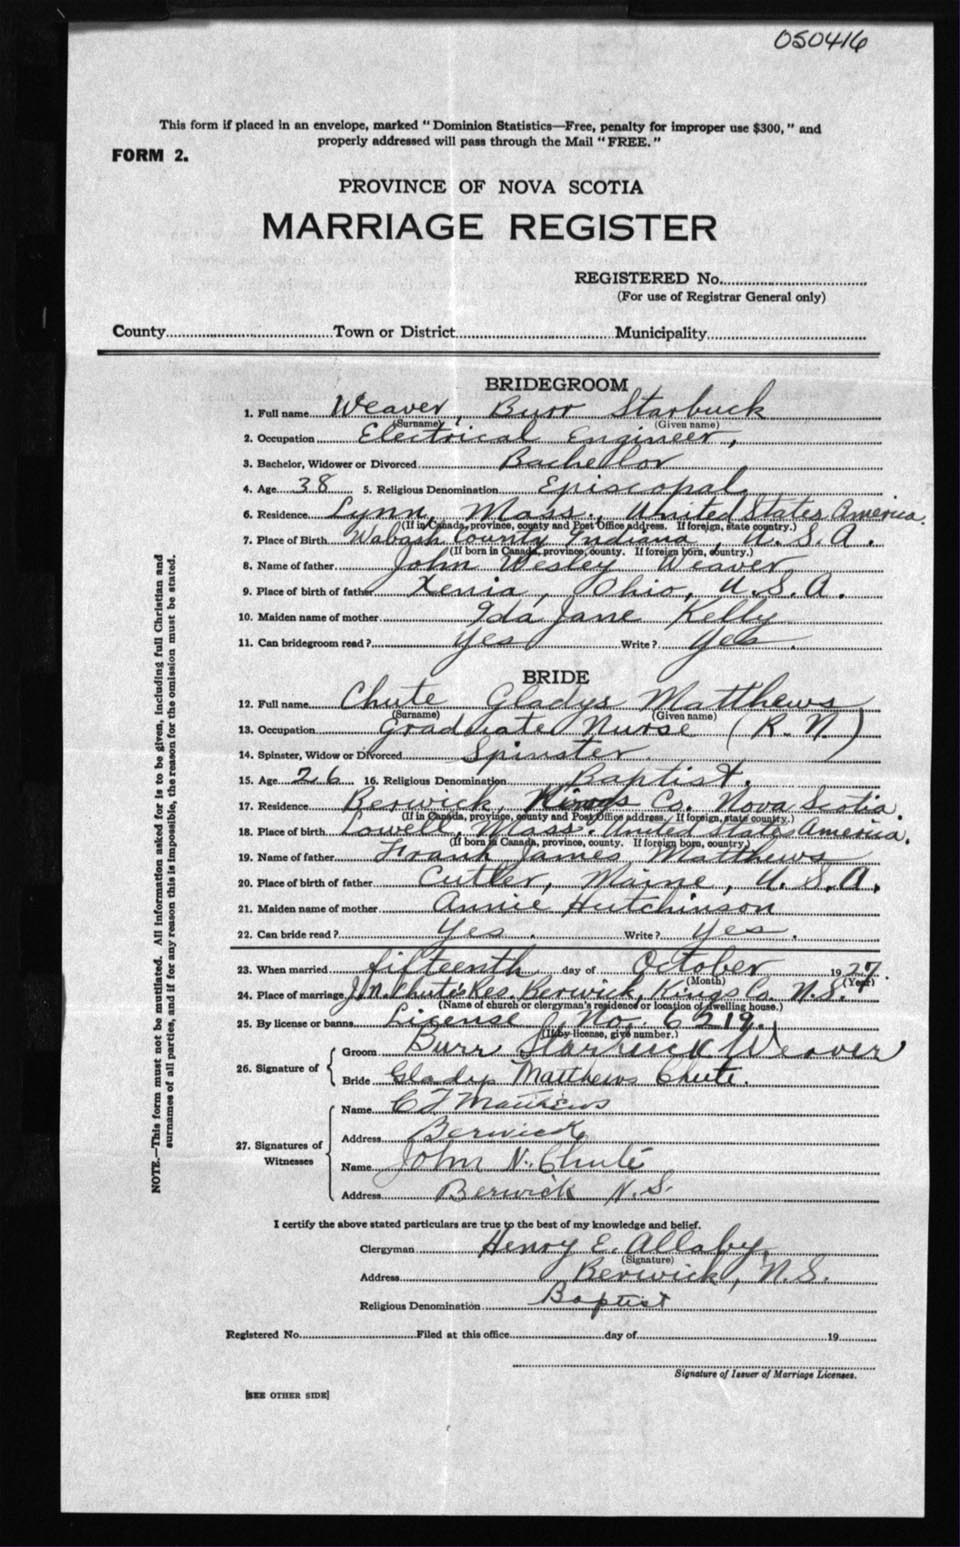 050416
This form if placed in an envelope, marked "Dominion Statistics—Free, penalty for improper use $300," and
properly addressed will pass through the Mail "FREE."
FORM 2.
PROVINCE OF NOVA SCOTIA
MARRIAGE REGISTER
REGISTERED No.
(For use of Registrar General only)
County Town or District Municipality
BRIDEGROOM
1. Full name Weaver, Burr Starbuck
(Surname) (Given name)
2. Occupation Electrical Engineer,
3. Bachelor, Widower or Divorced Bachelor
4. Age 38 5. Religious Denomination Episcopal
6. Residence Lynn, Mass, United States America.
(If in Canada, province, county and Post Office address. If foreign, state country.)
7. Place of Birth Wabash County Indiana, U.S.A.
(If born in Canada, province, county. If foreign born, country.)
8. Name of father John Wesley Weaver
9. Place of birth of father Xenia, Ohio, U.S.A.
10. Maiden name of mother Ida Jane Kelly
11. Can bridegroom read? Yes Write? Yes.
BRIDE
12. Full name Chute Gladys Matthews
(Surname) (Given name)
13. Occupation Graduate Nurse (R.N.)
14. Spinster, Widow or Divorced Spinster
15. Age 26 16. Religious Denomination Baptist.
17. Residence Berwick, Kings Co. Nova Scotia.
(If in Canada, province, county and Post Office address. If foreign, state country.)
18. Place of birth Lowell, Mass. United States America.
(If born in Canada, province, county. If foreign born, country.)
19. Name of father Frank James Matthews
20. Place of birth of father Cutler, Maine, U.S.A.
21. Maiden name of mother Annie Hutchinson
22. Can bride read? Yes. Write? Yes.
23. When married fifteenth day of October 1927.
(Month) (Year)
24. Place of marriage J.N. Chute's Res. Berwick, Kings Co. N.S.
(Name of church or clergyman's residence or location of dwelling house.)
25. By license or banns License No. 6219.
(If by license, give number.)
26. Signature of
Groom Burr Starbuck Weaver
Bride Gladys Matthews Chute.
27. Signatures of Witnesses
Name C F Matthews
Address Berwick
Name John N. Chute
Address Berwick N.S.
I certify the above stated particulars are true to the best of my knowledge and belief.
Clergyman Henry E. Allaby.
(Signature)
Address Berwick, N.S.
Religious Denomination Baptist
Registered No. Filed at this office day of 19
Signature of Issuer of Marriage Licenses.
[SEE OTHER SIDE]
NOTE.—This form must not be mutilated. All information asked for is to be given, including full Christian and
surnames of all parties, and if for any reason this is impossible, the reason for the omission must be stated.